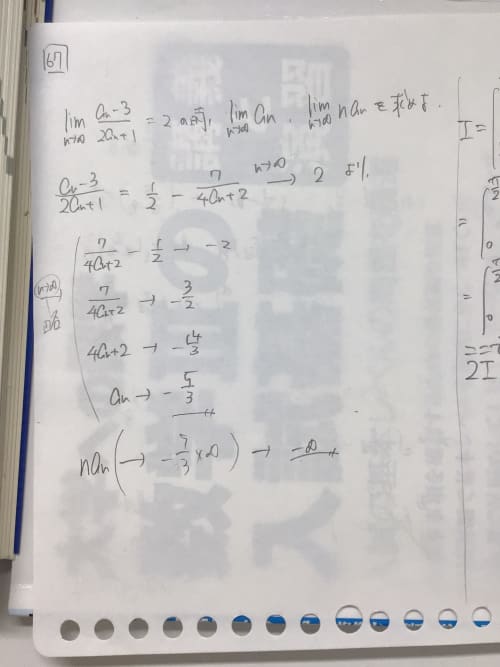 67
lim n→∞ (an-3)/(2an+1) = 2 の時, lim n→∞ an, lim n→∞ nan を求めよ.
(an-3)/(2an+1) = 1/2 - 7/(4an+2) n→∞ → 2 より,
7/(4an+2) - 1/2 → -2
n→∞
7/(4an+2) → -3/2
4an+2 → -14/3
an → -5/3
nan (→ -5/3 × ∞) → -∞
I =
=
=
2I